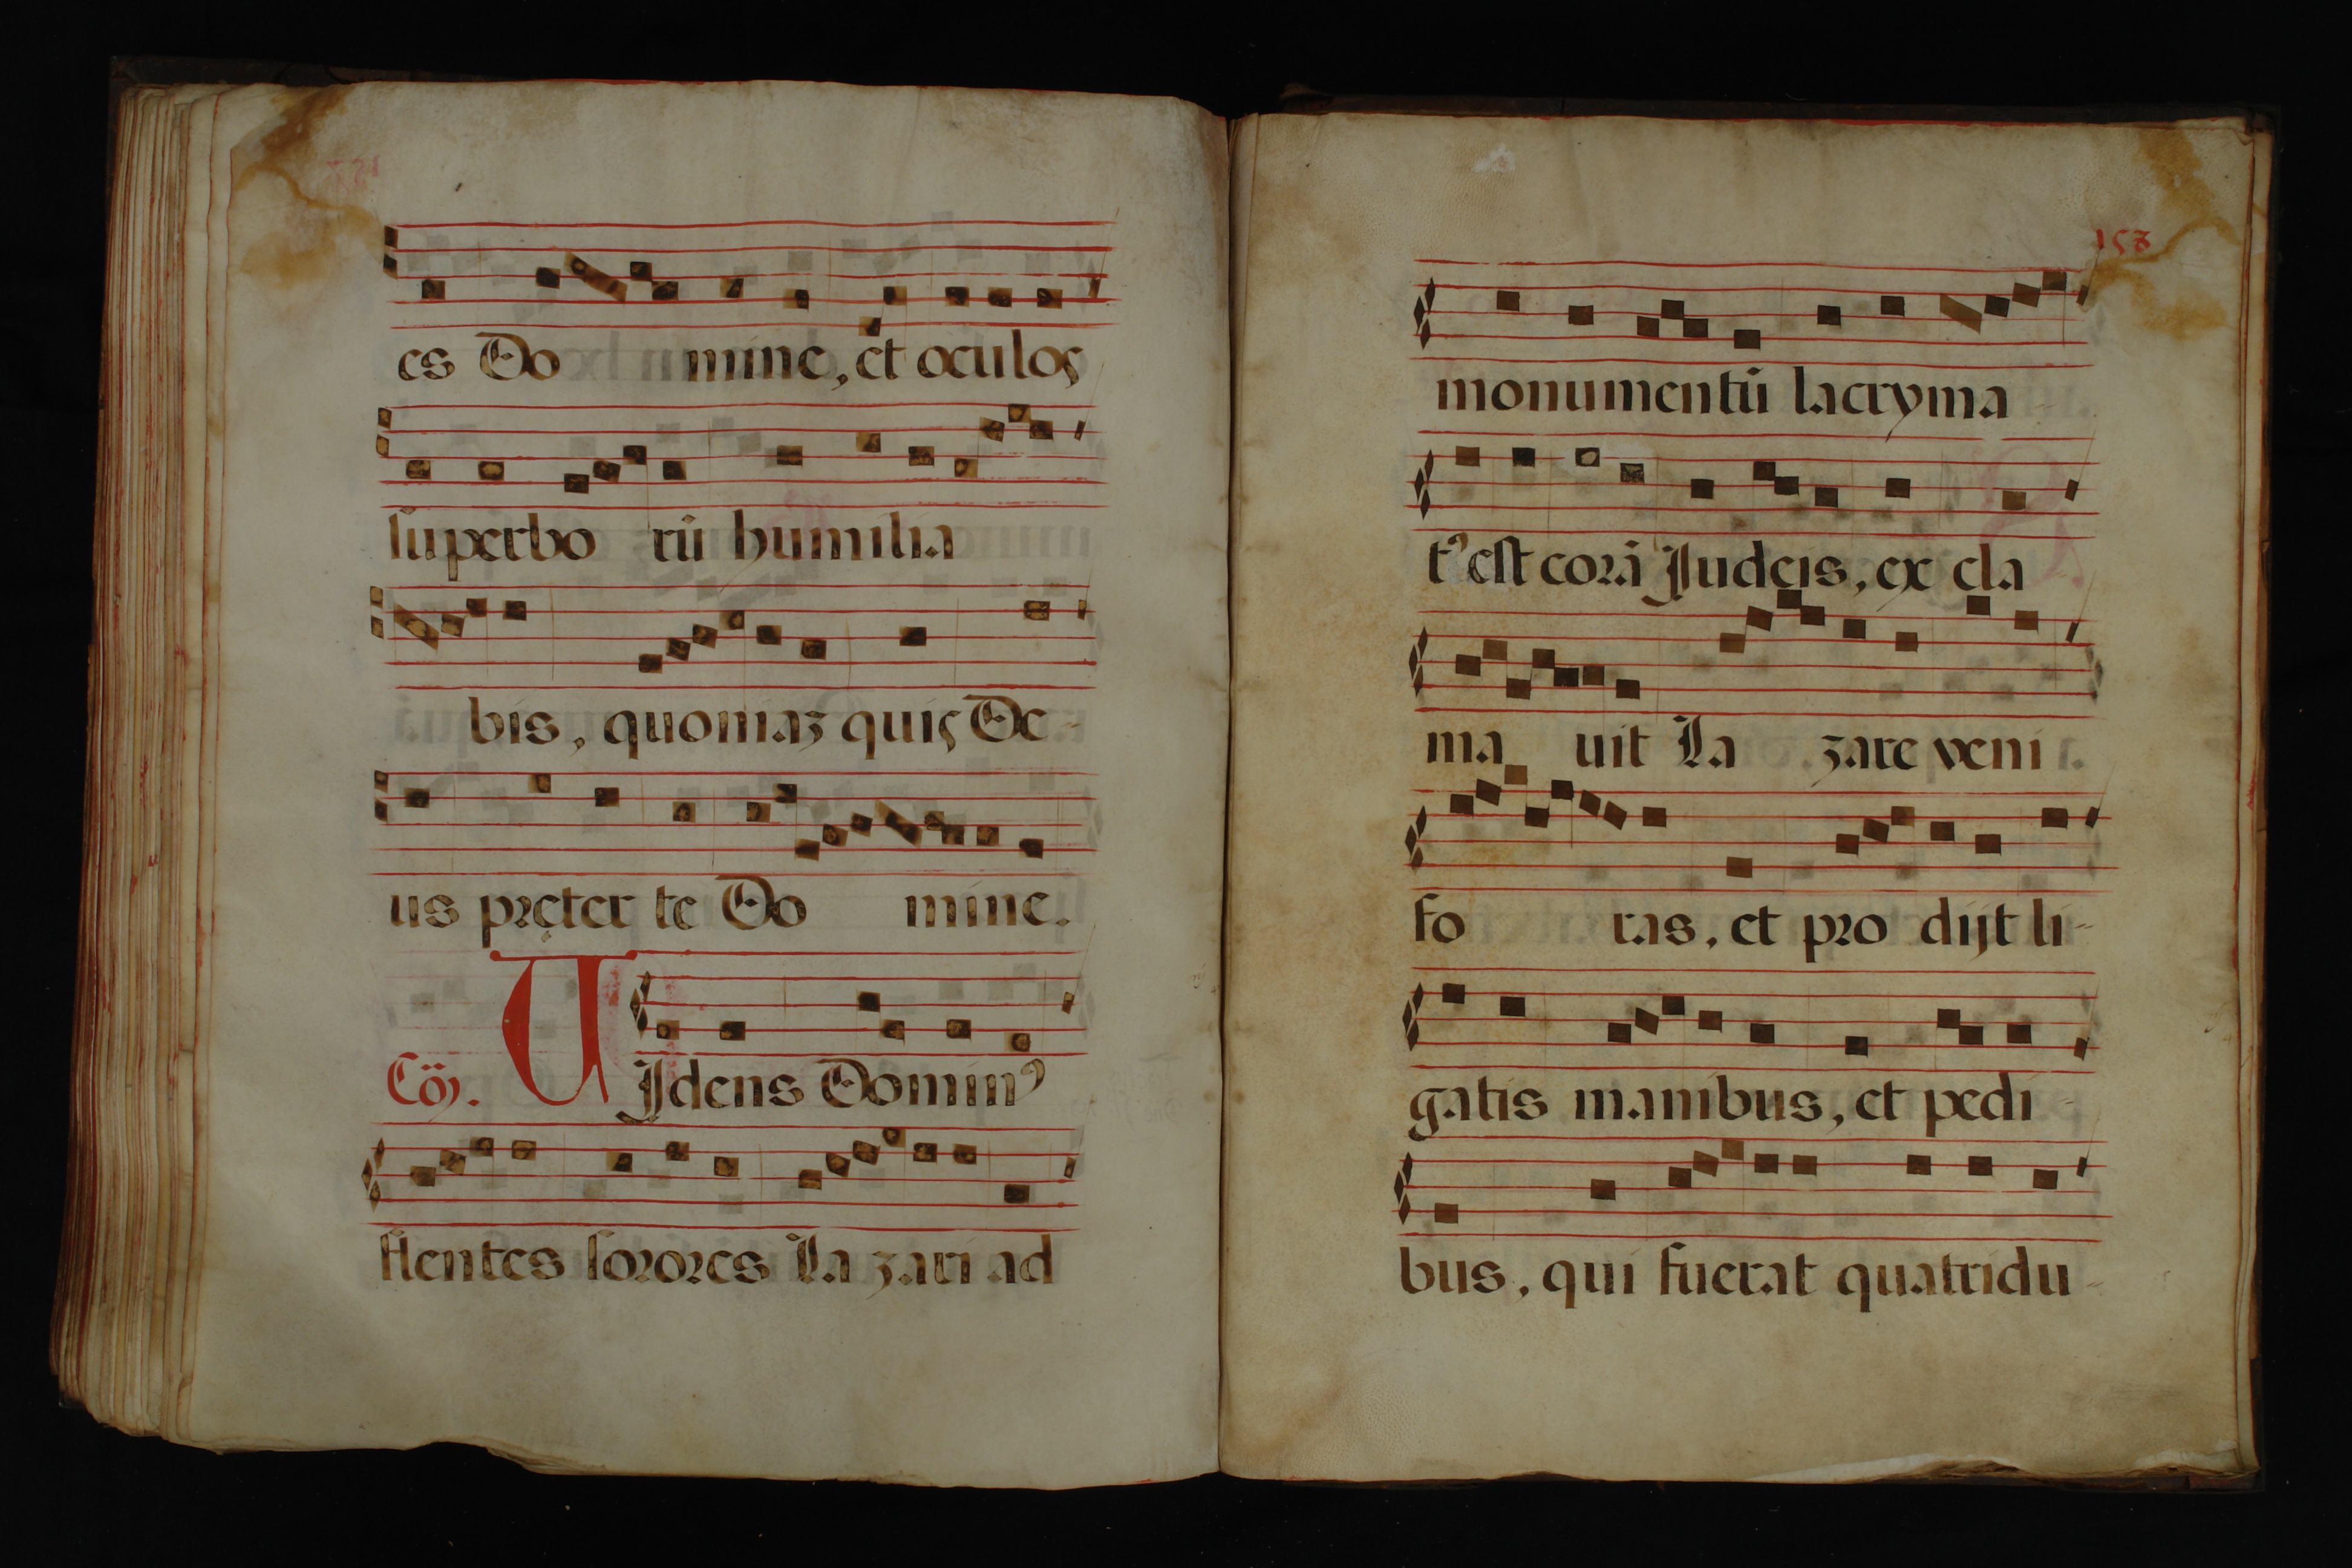 es Do mine, et oculos
superbo rū humilia
bis, quoniaz quis De-
us pręter te Do mine.
Cōꝫ. VJdens Dominꝰ
flentes sorores La zari ad
153
monumentū lacryma
tꝰ est corā Judeis, ex cla
ma uit La zare veni
fo ras, et pro dijt li-
gatis manibus, et pedi-
bus, qui fuerat quatridu-